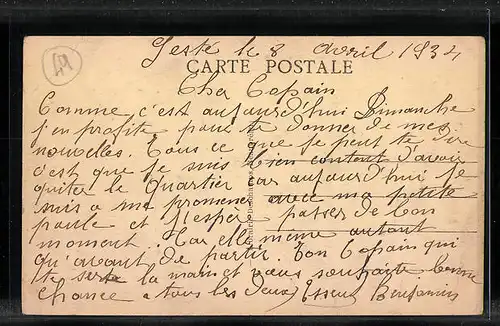 44
Geste le 8 avril 1934
CARTE POSTALE
Cher Copain
Comme c'est aujourd'hui Dimanche
j'en profite pour te donner de mes
nouvelles. Tous ce que je peut te dire
c'est que je suis bien contant d'avoir
quiter le Quartier car aujourd'hui je
suis a me promener avec ma petite
paule et j'espere passer de bon
moment. Car elle même autant
qu'avant de partir. Ton Copain qui
te serre la main et vous souhaite bonne
chance a tous les deux Benjamin